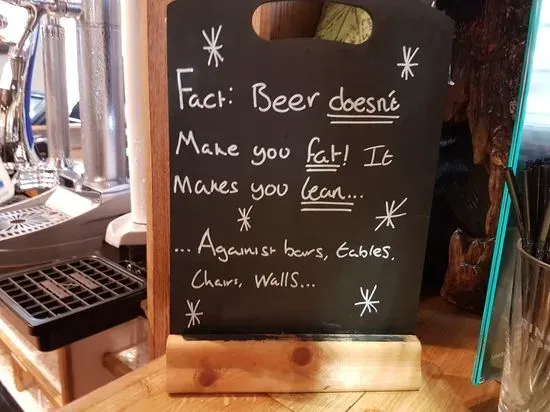 Fact: Beer doesn't
Make you fat! It
Makes you lean...
... Against bars, tables,
Chairs, Walls...